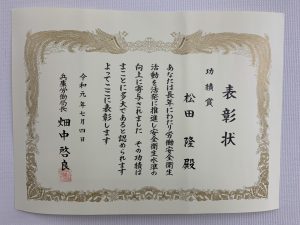 表彰状
功績賞
松田 隆 殿
あなたは長年にわたり労働安全衛生
活動を活発に推進し安全衛生水準の
向上に寄与されました その功績は
まことに多大であると認められます
よってここに表彰します
令和元年七月四日
兵庫労働局長
畑中啓良